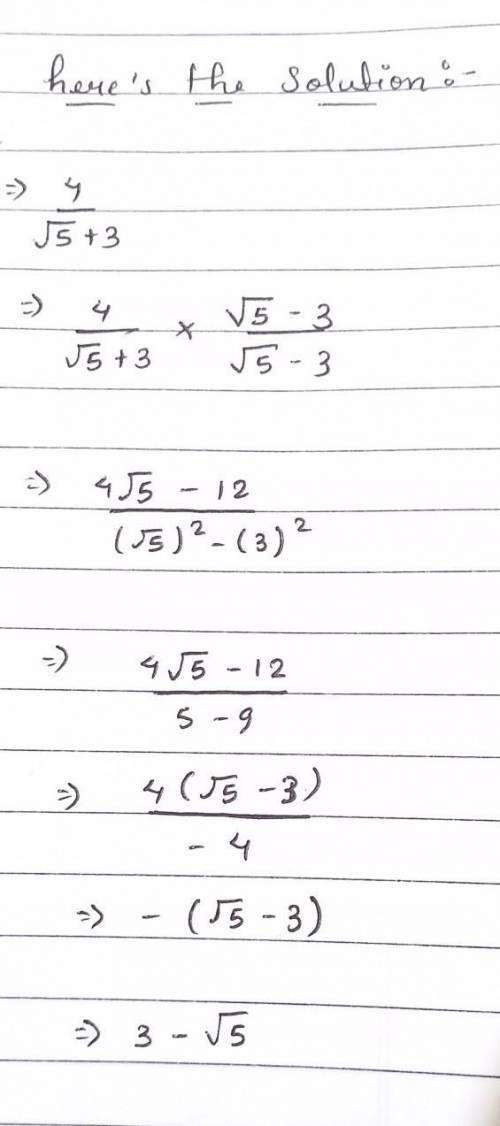 here's the solution :-
=> 4 / √5 + 3
=> 4 / √5 + 3 × √5 - 3 / √5 - 3
=> 4√5 - 12 / (√5)² - (3)²
=> 4√5 - 12 / 5 - 9
=> 4 (√5 - 3) / - 4
=> - (√5 - 3)
=> 3 - √5